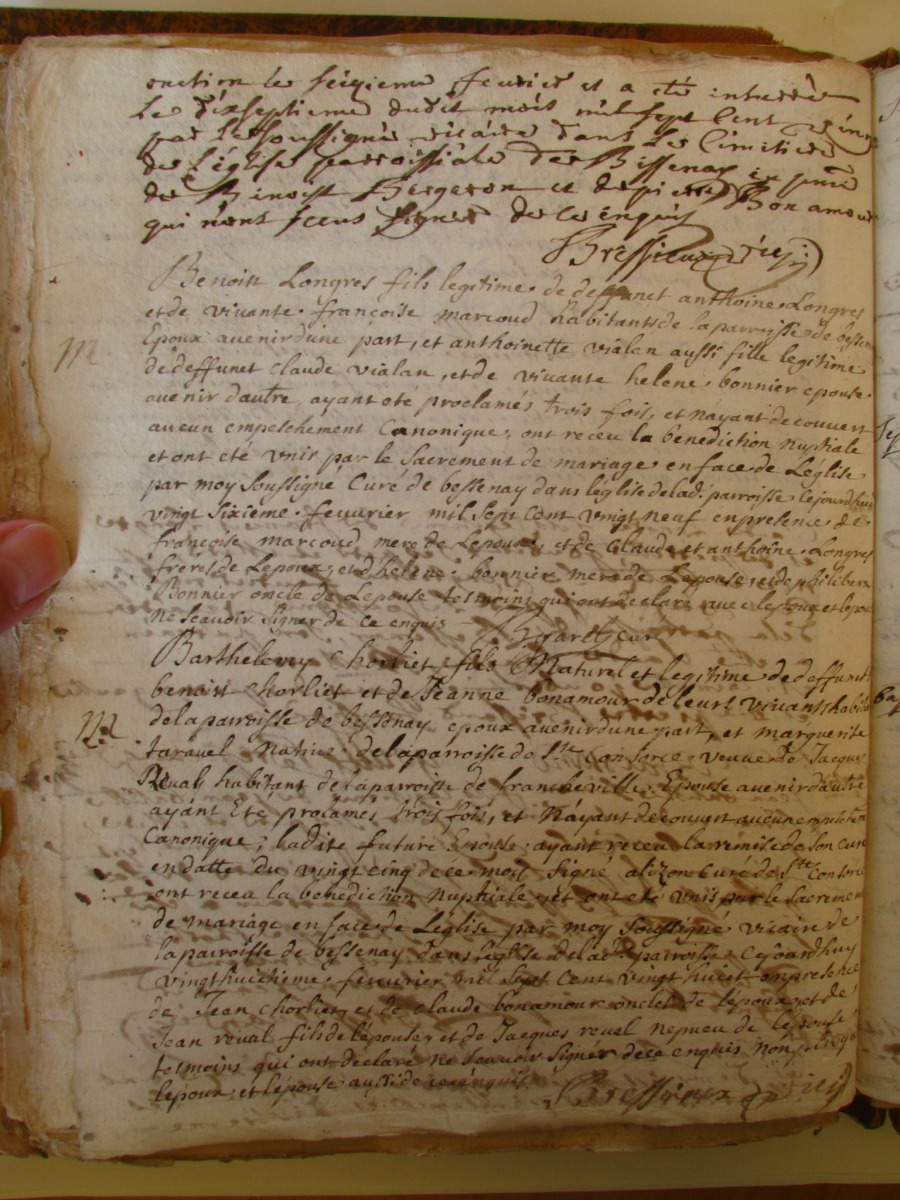 onction le seizieme feurier et a eté enterré
le dixseptieme dudit mois mil sept cent
par le soussigné vicaire dans le Cimetiere
de l'église parroissiale de Bessenay en pnce
de Benoist Bergeron et de pierre Bonamour
qui n'ont sceus signer de ce enquis
Bressieux vic
Benoist Longres fils legitime de deffunct anthoine Longres
et de viuante francoise marcoud habitants de la parroisse de bessenay
Epoux auenir dune part, et anthoinette vialan aussi fille legitime
de deffunct claude vialan, et de viuante helene bonnier epouse
auenir dautre, ayant eté proclamés trois fois, et nayant decouvert
aucun empeschement Canonique, ont receu la benediction nuptiale
et ont eté vnis par le sacrement de mariage en face de L'église
par moy soussigné Curé de bessenay dans léglise de lad. parroisse cejourdhuy
vingt sixieme feuurier mil sept cent vingt neuf en presence de
francoise marcoud mere de Lepoux, et de Claude et anthoine Longres
freres de Lepoux, et d'helene bonnier mere de Lepouse, et de philibert
Bonnier oncle de Lepouse tesmoins qui ont declaré auec lepoux et lepouse
ne scauoir signer de ce enquis
M
Barthelemy Chorliet fils Naturel et legitime de deffunct
benoist Chorliet et de Jeanne bonamour de leurs viuants habitants
de la parroisse de bessenay epoux auenir dune part, et marguerite
tarauel Natiue de la parroisse de Ste Consorce veuue de Jacques
Reual habitant de la parroisse de francheville Epouse auenir dautre
ayant Eté proclamés trois fois, et Nayant decouvert aucun empeschement
Canonique, ladite future Epouse ayant receu la remise de son Curé
en datte du vingt cinq de ce mois signé alizon Curé de Ste Consorce
ont receu la benediction Nuptiale et ont eté vnis par le Sacrement
de mariage en face de Léglise par moy soussigné vicaire de
la parroisse de bessenay dans léglise de lad. parroisse Cejourdhuy
vingthuictieme feuurier mil sept cent vingt en presence
de Jean Chorliet, et de claude bonamour oncles de lépoux, et de
Jean reual fils de lépouse, et de Jacques reual nepueu de lépouse
tesmoins qui ont declaré ne scauoir signer de ce enquis non plus que
lepoux et lépouse aussi de ce enquis
M
Bressieux vic